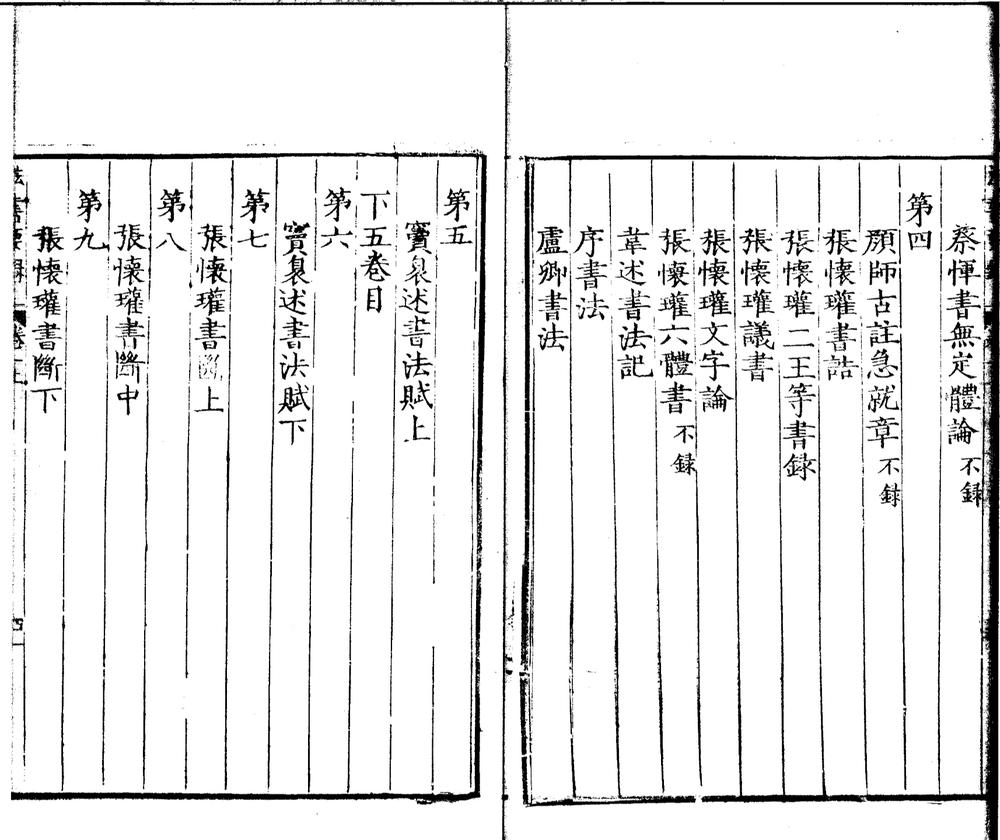 蔡惲書無定體論不録
第四
顏師古註急就章不録
張懷瓘書詁
張懷瓘二王等書録
張懷瓘議書
張懷瓘文字論
張懷瓘六體書不録
韋述書法記
序書法
盧卿書法
第五
竇臮述書法賦上
下五卷目
第六
竇臮述書法賦下
第七
張懷瓘書斷上
第八
張懷瓘書斷中
第九
張懷瓘書斷下